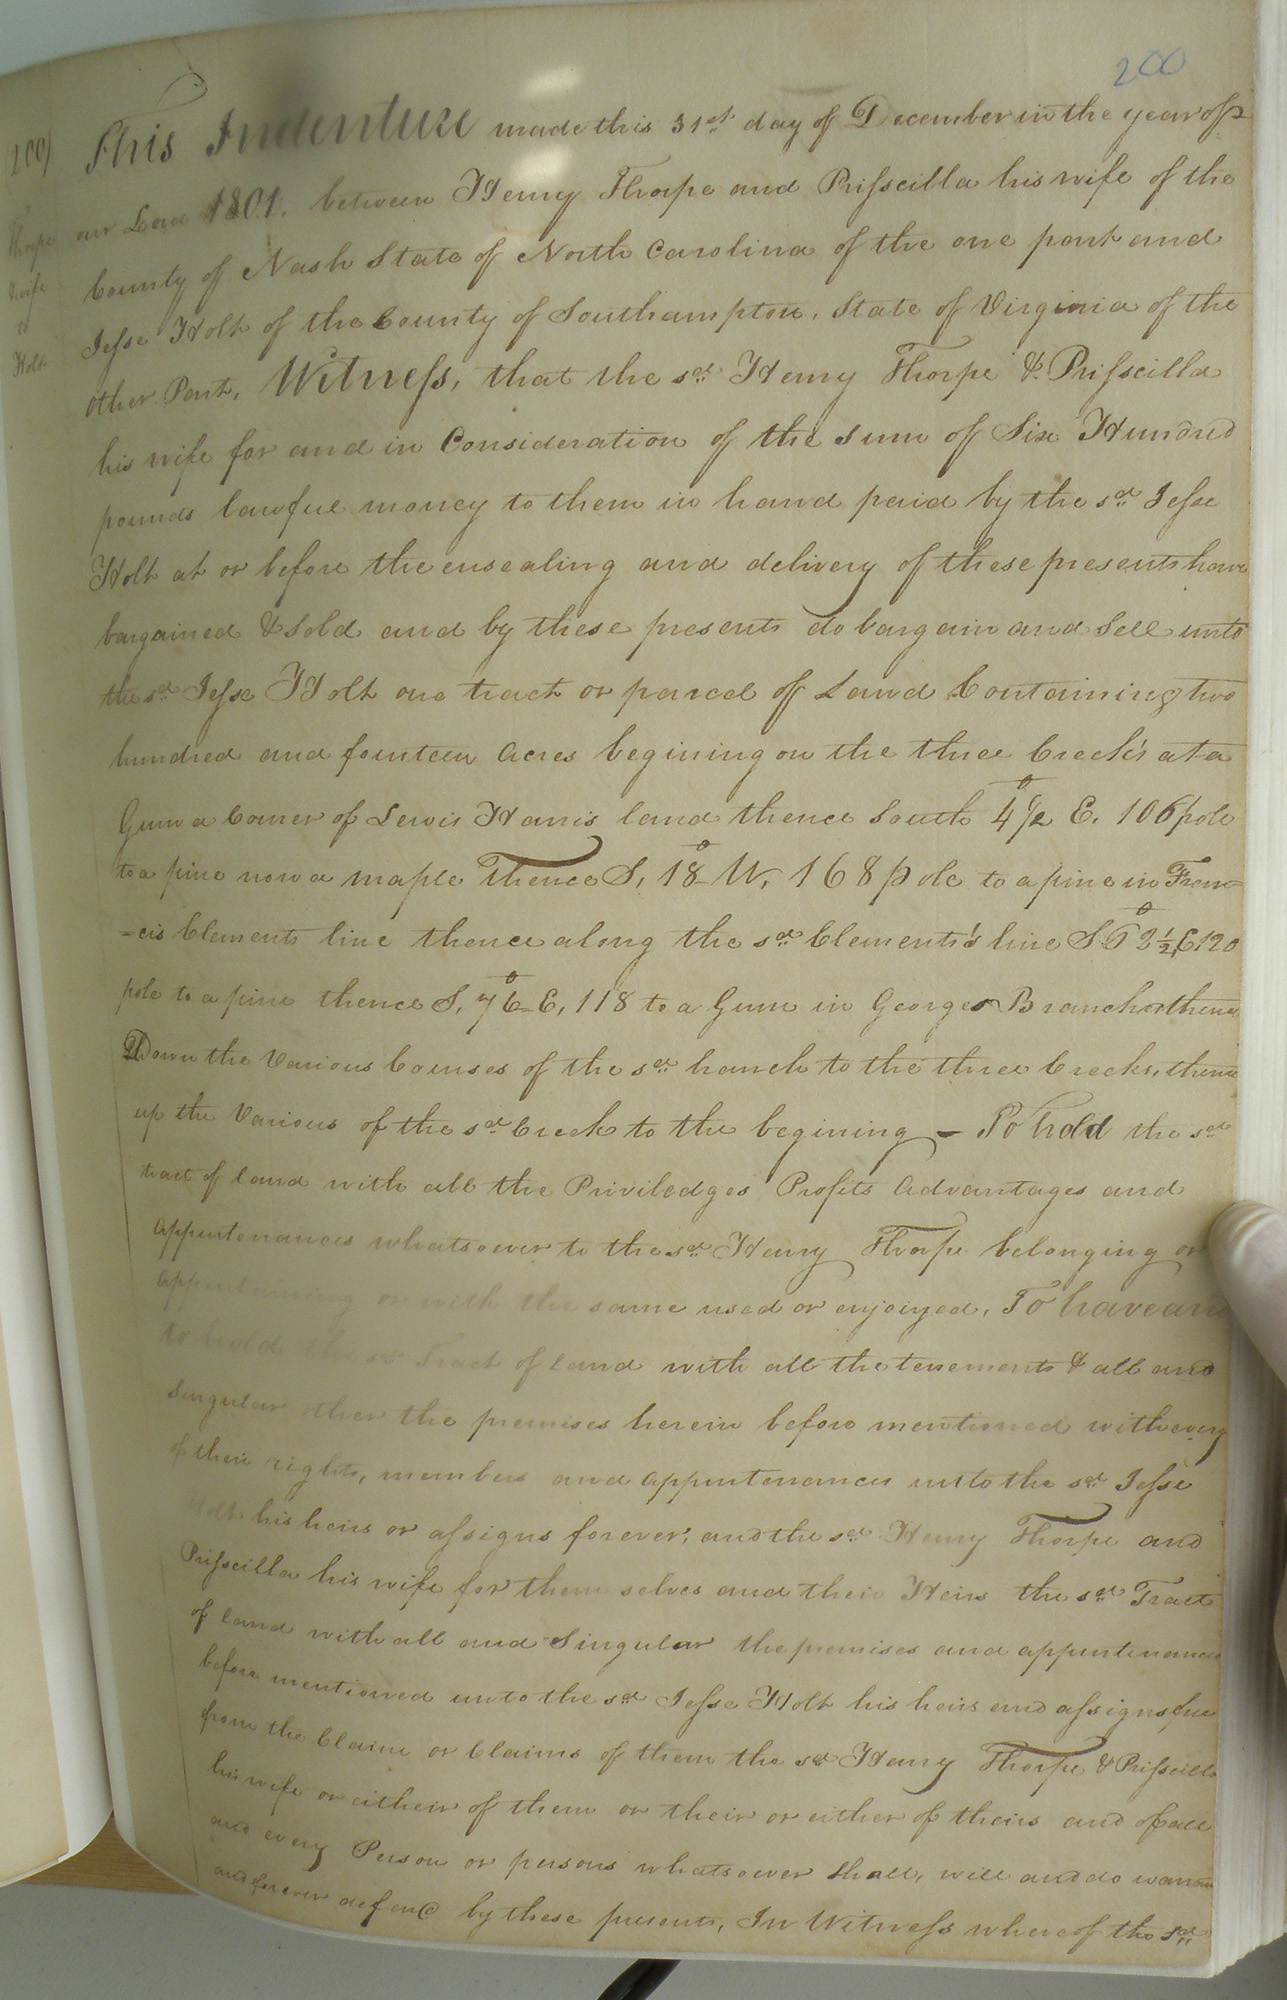 200
(200)
This Indenture made this 31st day of December in the year of
our Lord 1801. between Henry Thorpe and Prisscilla his wife of the
County of Nash State of North Carolina of the one part and
Jesse Holt of the County of Southampton, State of Virginia of the
other Part, Witness, that the sd Henry Thorpe & Prisscilla
his wife for and in Consideration of the sum of Six Hundred
pounds lawful money to them in hand paid by the sd Jesse
Holt at or before the ensealing and delivery of these presents have
bargained & Sold and by these presents do bargain and Sell unto
the sd Jesse Holt one tract or parcel of Land Containing two
hundred and fourteen Acres begining on the three Creek's at a
Gum a Corner of Lewis Harris land thence South 4 1/2° E. 106 pole
to a pine now a maple Thence S, 18° W, 168 pole to a pine in Fran=
=cis Clements line thence along the sd Clements's line S 63 1/2° E, 120
pole to a pine thence S, 76° E, 118 to a Gum in Georges Branch thence
Down the Various Courses of the sd branch to the three Creeks, thence
up the Various of the sd Creek to the begining – To hold the sd
tract of land with all the Priviledges Profits Advantages and
Appurtenances whatsoever to the sd Henry Thorpe belonging or
appertaining or with the same used or enjoiyed, To have and
to hold the sd Tract of land with all the tenements & all and
Singular other the premises herein before mentioned with every
of their rights, members and appurtenances unto the sd Jesse
Holt his heirs or assigns forever, and the sd Henry Thorpe and
Prisscilla his wife for them selves and their Heirs the sd Tract
of land with all and Singular the premises and appurtenances
before mentioned unto the sd Jesse Holt his heirs and assigns free
from the Claim or Claims of them the sd Henry Thorpe & Prisscilla
his wife or eitheir of them or their or either of theirs and of all
and every Person or persons whatsoever Shall, will and do warrant
and forever defend by these presents, In Witness whereof the sd
Thorpe
& wife
to
Holt